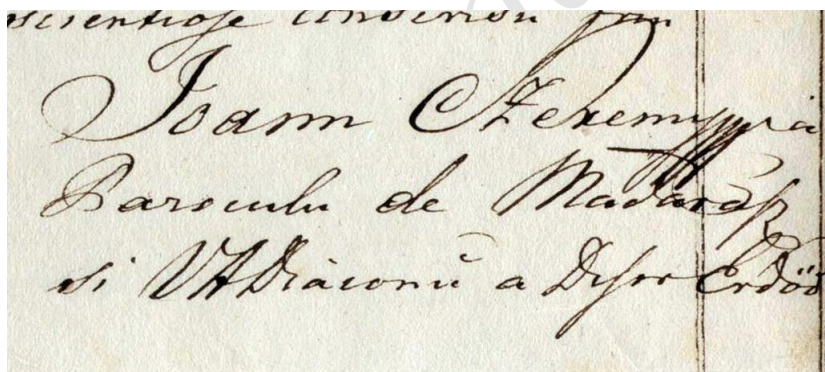 Joann Szeremy
Parochulu de Madarász
si VADiáconu a Distr Erdöd